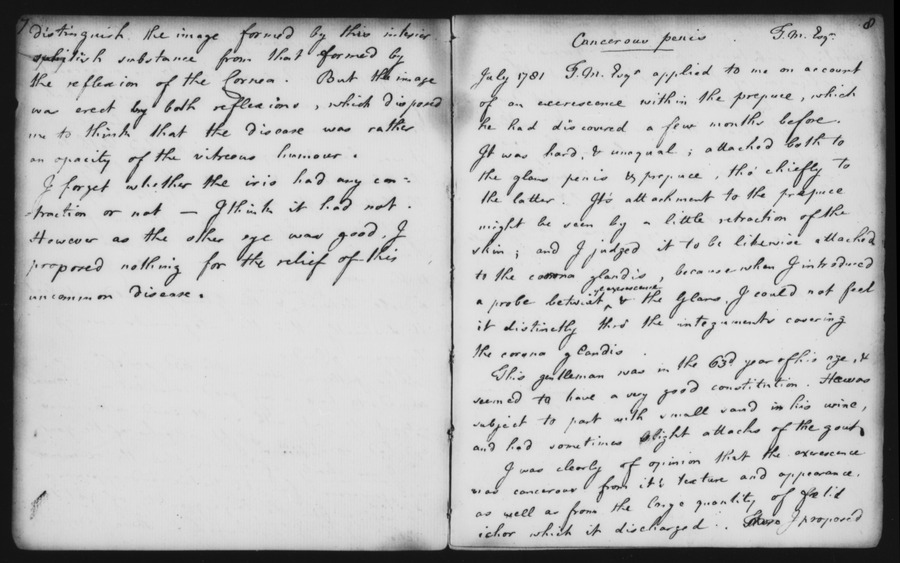 7
distinguish the image formed by this interior
whitish substance from that formed by
the reflexion of the Cornea. But the image
was erect by both reflexions, which disposed
me to think that the disease was rather
an opacity of the vitreous humour.
I forget whether the iris had any con=
traction or not — I think it had not.
However as the other eye was good, I
proposed nothing for the relief of this
uncommon disease.
8
Cancerous penis. T.M. Esqr.
July 1781 T.M. Esqr applied to me on account
of an excrescence within the prepuce, which
he had discovered a few months before.
It was hard, & unequal; attached both to
the glans penis & prepuce, tho' chiefly to
the latter. It's attachment to the prepuce
might be seen by a little retraction of the
skin; and I judged it to be likewise attached
to the corona glandis, because when I introduced
a probe betwixt ye excrescence & the Glans, I could not feel
it distinctly thro' the integuments covering
the corona glandis.
This gentleman was in the 63d year of his age, &
seemed to have a very good constitution. He was
subject to part with small sand in his urine,
and had sometimes slight attacks of the gout.
I was clearly of opinion that the excrescence
was cancerous from it's texture and appearance,
as well as from the large quantity of fœtid
ichor which it discharged. I proposed